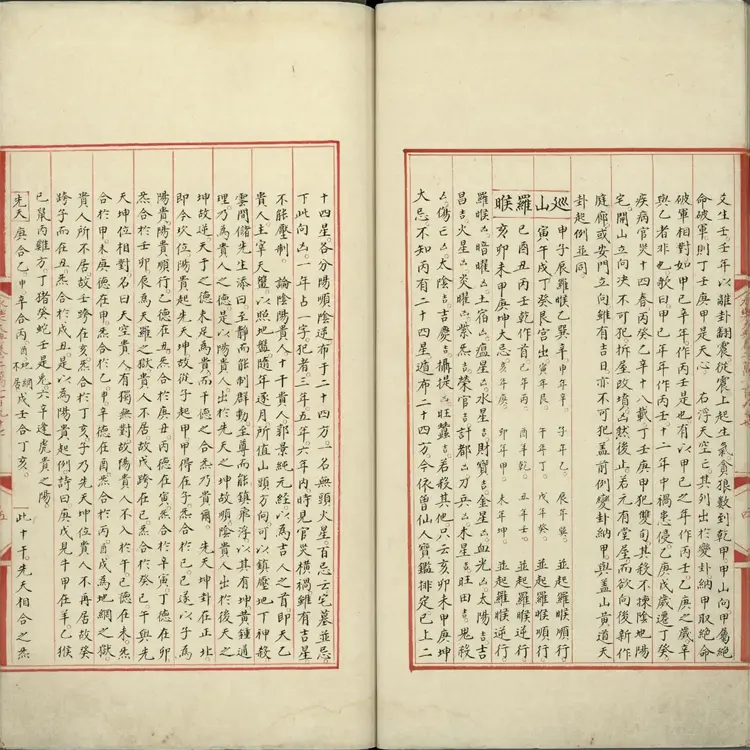 艾生壬壬年以離卦翻震從震上起生氣貪狼數到乾甲甲山向甲屬絕
命破軍則丁壬庚甲是天心 右浮天空亡其列出於變卦納甲取絕命
破軍相對如甲己辛年作丙壬是也有以甲己之年作丙壬乙庚之歲辛
與乙者非也歌曰甲己年年作丙壬十二年中禍患侵乙庚戊歲還丁癸
疾病官災十四春丙癸乙辛十八載丁壬庚甲犯雙旬其殺不揀陰地陽
宅開山立向决不可犯拆屋改墳凶然後止若元有堂屋而欲向後新作
庭廊或安門立向雖有吉日亦不可犯蓋前例變卦納甲與蓋山黃道天
卦起例並同
廵山羅睺 甲子辰羅睺乙巽辛 甲年辛 子年乙 辰年巽 並起羅睺順行
寅午戌丁癸艮宮出 寅年艮 午年丁 戌年癸 並起羅睺順行
巳酉丑丙壬乾作首 巳年丙 酉年乾 丑年壬 並起羅睺逆行
亥卯未甲庚坤大忌 亥年庚 卯年甲 未年坤 並起羅睺逆行
羅睺凶暗曜凶土宿凶瘟星凶水星吉財寶吉金星凶血光凶太陽吉吉
昌吉火星凶炎曜凶紫炁吉榮官吉計都凶刀兵凶木星吉旺田吉鬼殺
凶傷亡凶太陰吉吉慶吉攝提凶旺蠶吉若殺其他只云亥卯未甲庚坤
大忌不知丙有二十四星遁布二十四方今依曾仙人寶鑑排定已上二
十四星各分陽順陰逆布于二十四方一名無頭火星百忌云宅墓並忌
下此向凶一年占一字犯者三年五年六年內時見官災橫禍雖有吉星
不能壓制 論陰陽貴人十干貴人郭景純元經以爲吉人之首即天乙
貴人主宰天盤以照地盤隨年逐月所值山頭方向可以鎮壓地下神殺
雲間儲先生添曰至靜而能制群動至尊而能鎮飛浮以其有坤黃鍾通
理乃爲貴人之德是以陽貴人出於先天之坤故順陰貴人出於後天之
坤故逆天干之德未足爲貴而干德之合炁乃貴爾 先天坤卦在正北
即今坎位陽貴起先天坤故從子起甲甲得在子炁合於己己遂以子爲
陽貴陽貴順行乙德在丑炁合於庚丑丙德在寅炁合於辛寅丁德在卯
炁合於壬卯辰爲天羅之獄貴人不居故戊跨在巳炁合於癸巳午與先
天坤位相對名曰天空貴人有獨無對故陽貴人不入於午己德在未炁
合於甲未庚德在申炁合於乙申辛德在酉炁合於丙酉戌爲地網之獄
貴人所不居故壬跨在亥炁合於丁亥子乃先天坤位貴人不再居故癸
跨子而在丑炁合於戊丑是以爲陽貴起例詩曰庚戊見牛甲在羊乙猴
己鼠丙雞方丁猪癸蛇壬是兔六辛逢虎貴之陽
先天庚合乙申辛合丙酉地網不居戌壬合丁亥 此十干先天相合之炁